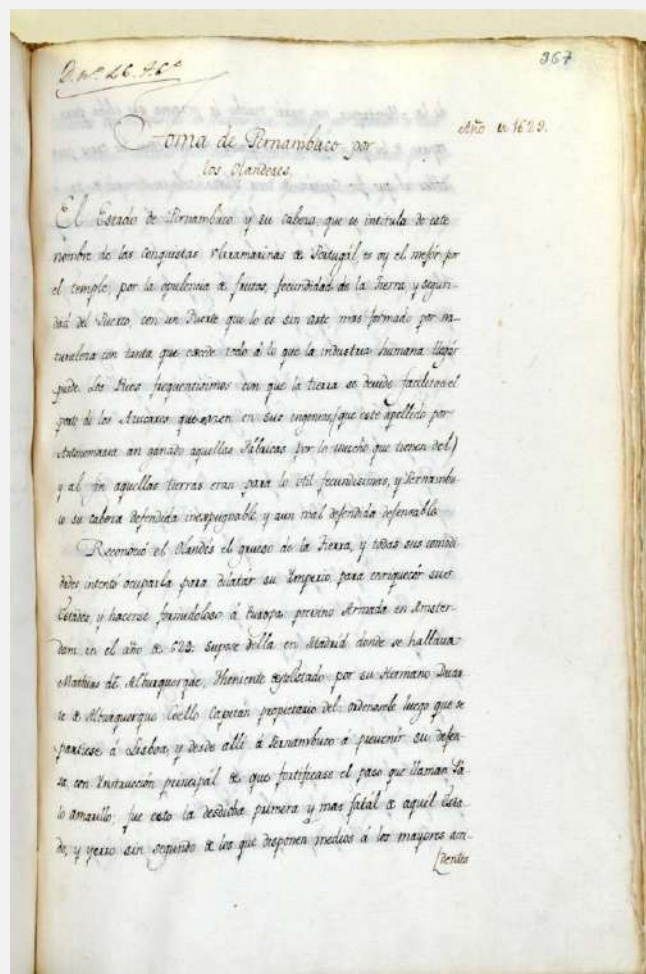 367
D. nº. 26. f. 6ª
Año de 1629.
Toma de Pernambuco por
los Olandeses.
El Estado de Pernambuco y su cabeza, que se intitula de este
nombre de las conquistas Vltramarinas de Portugál, es oy el mejór por
el temple, por la opulencia de frutos, fecundidad de la tierra, y seguri-
dad del Puerto, con un Fuerte que lo es sin arte mas formado por na-
turaleza con tanta que excede todo á lo que la industria humana llegár
pude. Los Rios frequentisimos con que la tierra se devide facilitan el
porte de los Azucares que en sus engenios, (que este apellido por
Autonomasia an ganado aquellas Fábricas por lo mucho que tienen del)
y al fin aquellas tierras eran para lo vtil fecundisimas, y Pernambu-
co su cabeza defendida inexpugnable, y aun mal defendida defensable.
Reconoció el Olandés el grueso de la tierra, y todas sus comodi-
dades intentó ocuparla para dilatar su Ymperio, para enriquecér sus
Estados, y hacerse formidoloso á Europa: previno Armada en Amster-
dam, en el año de 629: supose della en Madrid donde se hallava
Mathias de Alburquerque, Theniente del estado por su Hermano Duar-
te de Alburquerque Coello Capitán propietario del: ordenosele luego que se
partiese á Lisboa, y desde alli á Pernambuco á prevenir su defen-
sa, con Ynstrucción principál de que fortificase el paso que llaman Pa-
lo amarillo; fue esto la desdicha primera y mas fatál de aquél Esta-
do, y yerro sin segundo de los que desponen medios á los mayores acci-
dentes